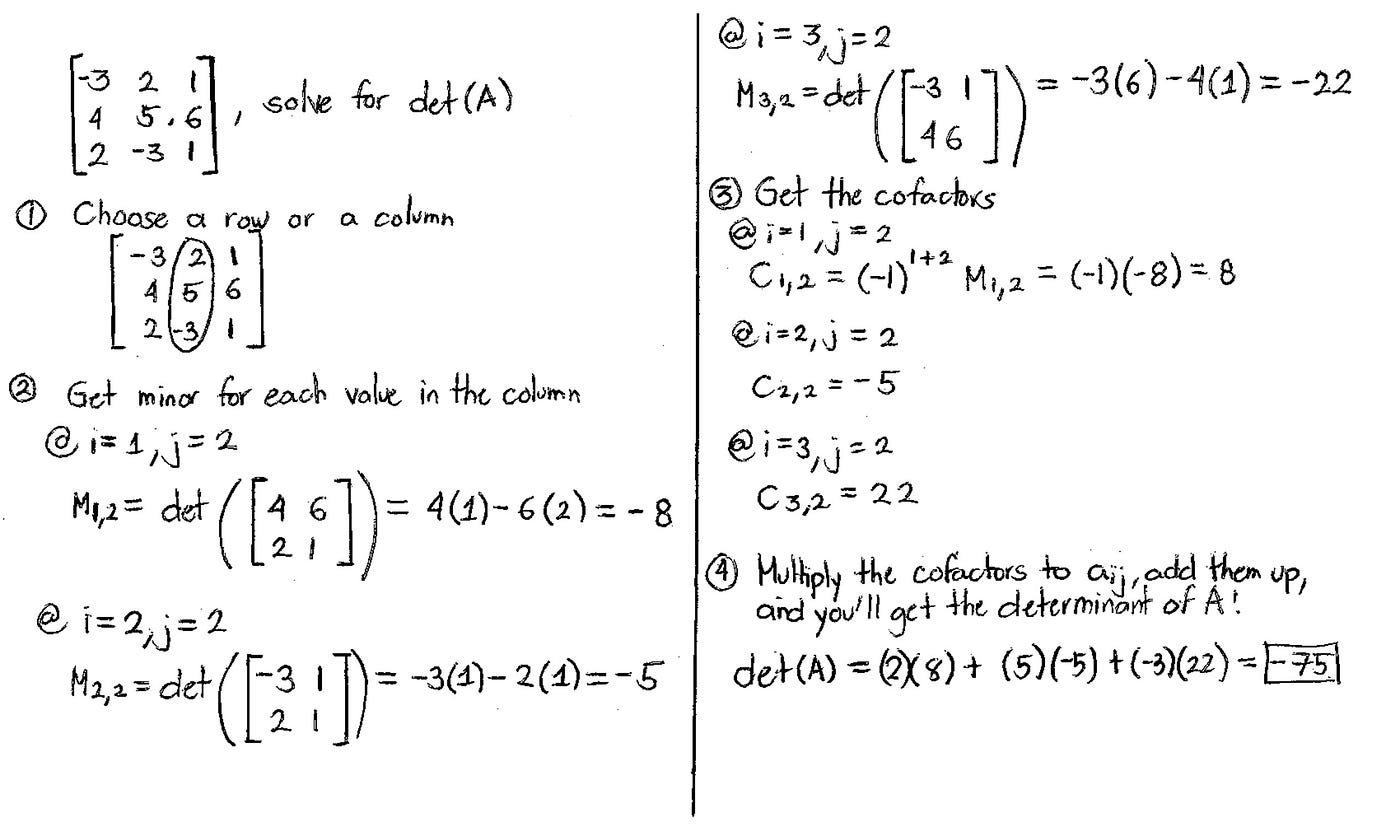 [-3 2 1
4 5. 6
2 -3 1], solve for det(A)
① Choose a row or a column
[-3 2 1
4 5 6
2 -3 1]
② Get minor for each value in the column
@ i=1, j=2
M1,2 = det([4 6
2 1]) = 4(1)-6(2) = -8
@ i=2, j=2
M2,2 = det([-3 1
2 1]) = -3(1)-2(1) = -5
@ i=3, j=2
M3,2 = det([-3 1
4 6]) = -3(6)-4(1) = -22
③ Get the cofactors
@ i=1, j=2
C1,2 = (-1)^1+2 M1,2 = (-1)(-8) = 8
@ i=2, j=2
C2,2 = -5
@ i=3, j=2
C3,2 = 22
④ Multiply the cofactors to aij, add them up,
and you'll get the determinant of A!
det(A) = (2)(8) + (5)(-5) + (-3)(22) = -75